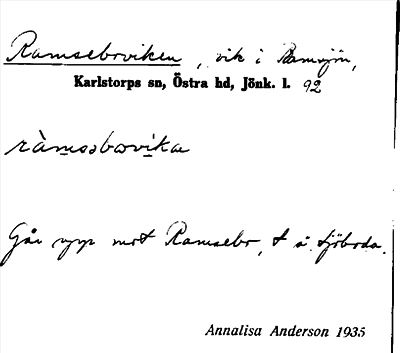 Ramsebroviken, vik i Ramsjön,
Karlstorps sn, Östra hd, Jönk. l. 92
ràmsəbωvika
Går upp mot Ramsebo, t å
Annalisa Anderson 1935